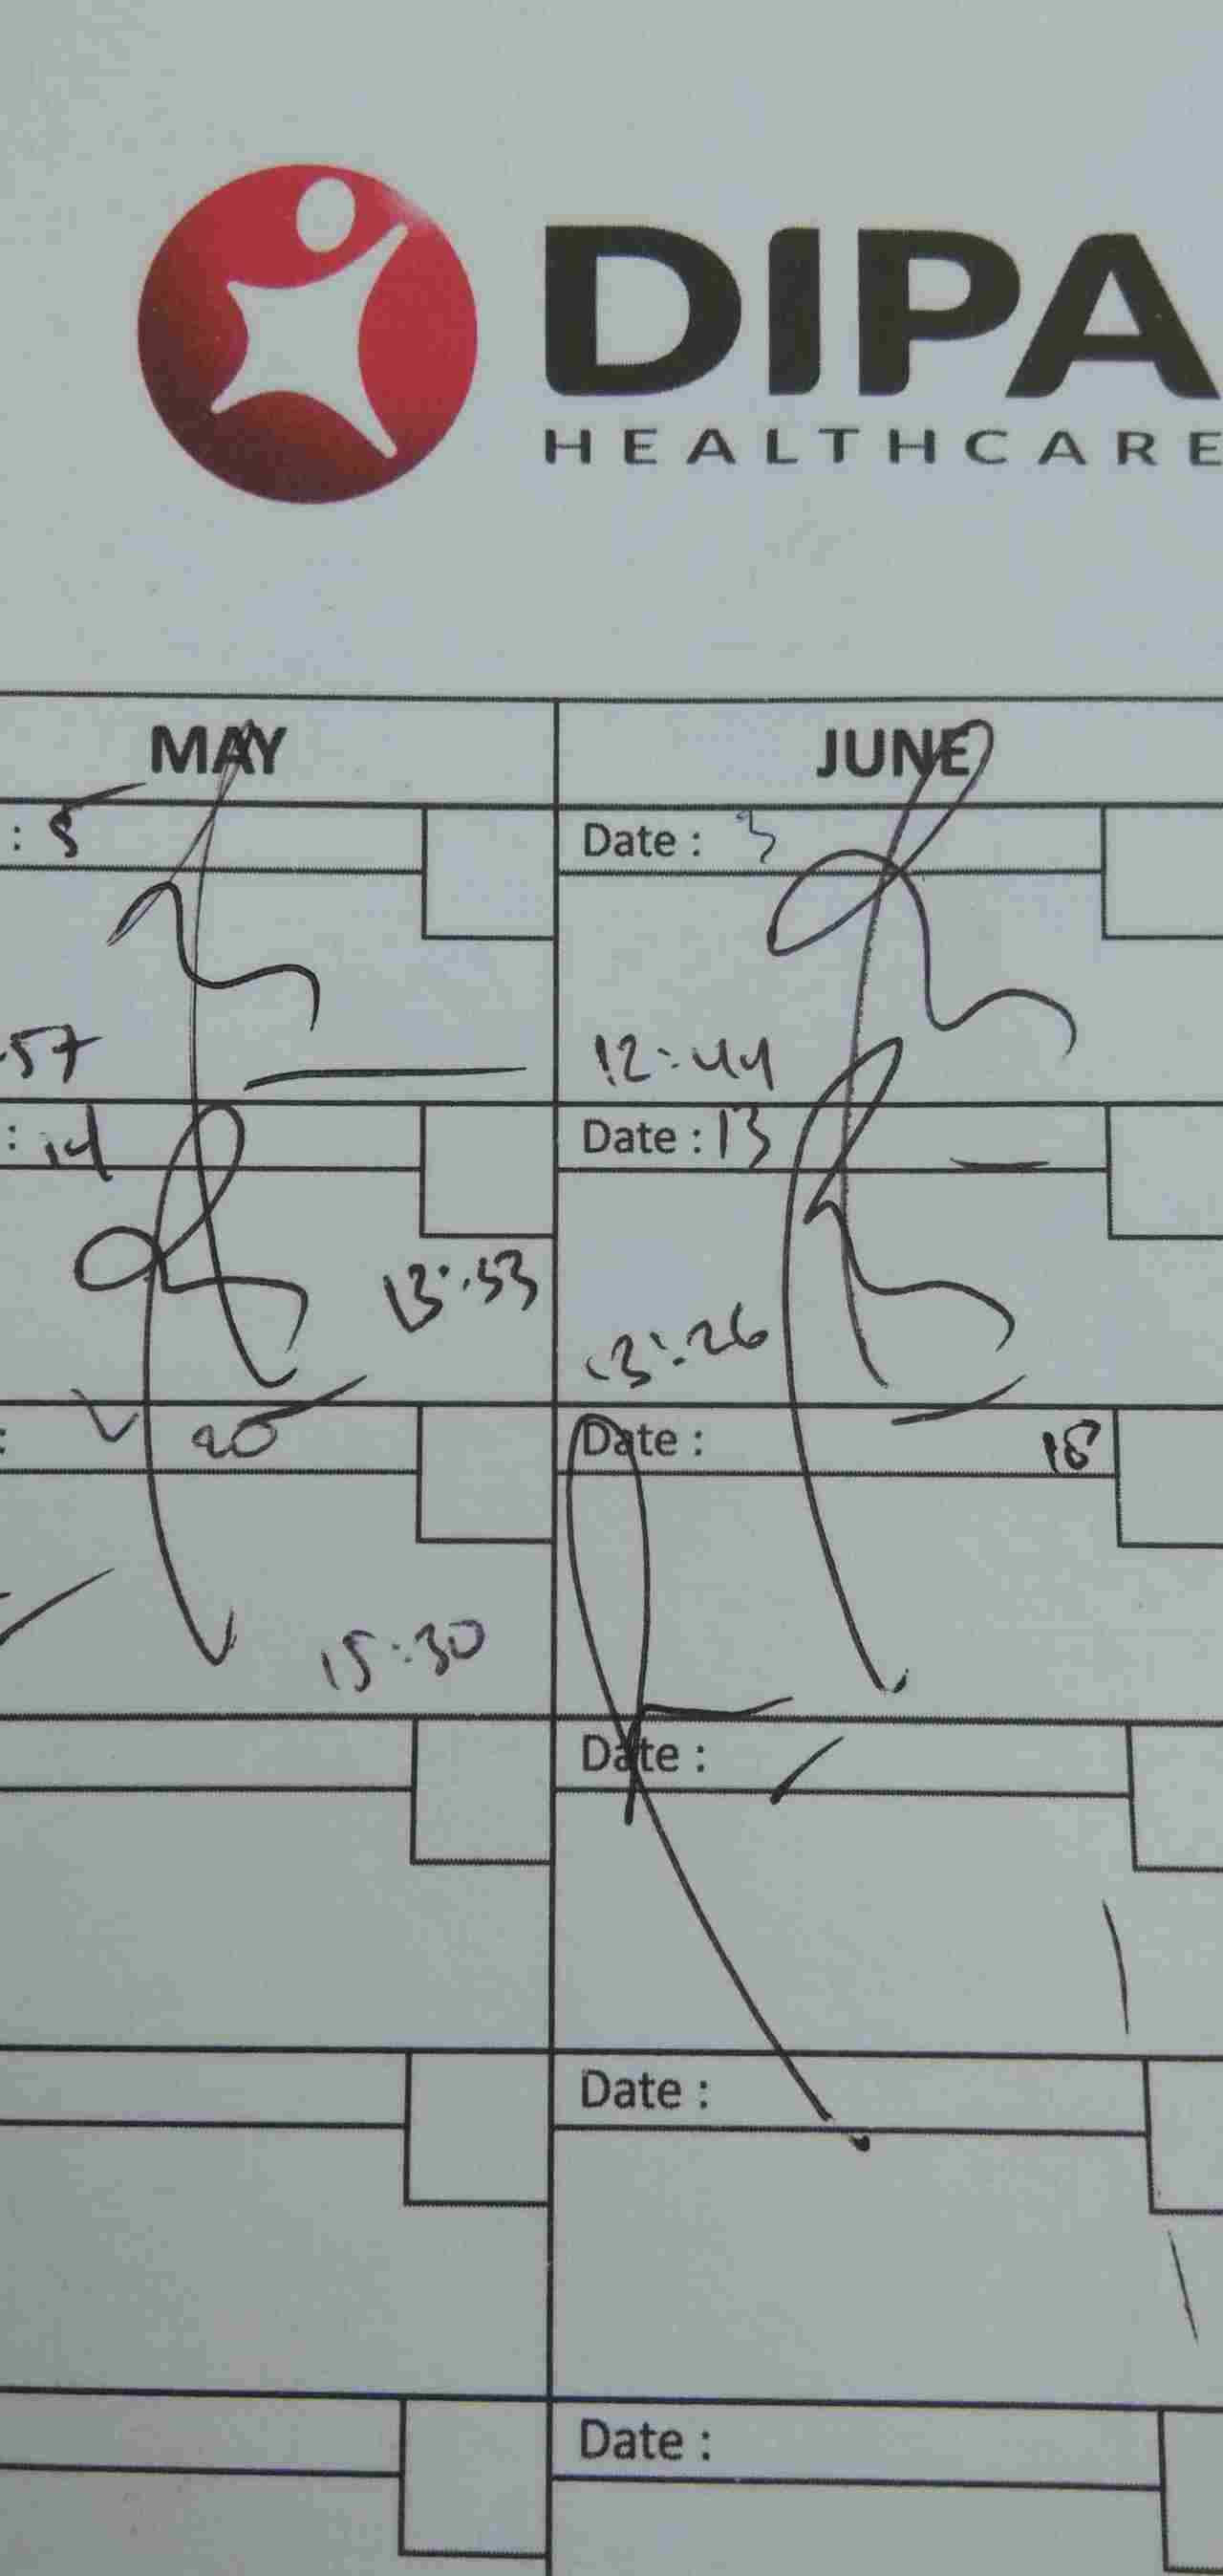 DIPA
HEALTHCARE
MAY
JUNE
: 8
Date : 3
57
12:44
: 14
Date : 13
13:53
13:26
: 20
Date : 18
15:30
Date :
Date :
Date :